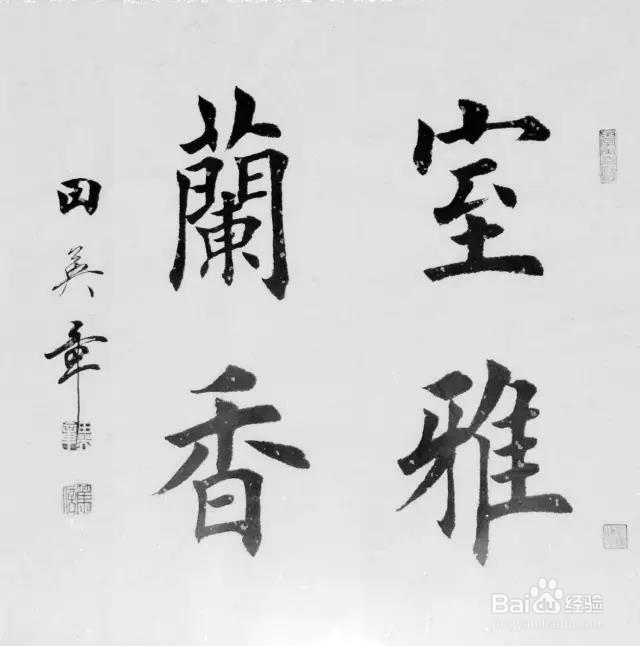 室雅
蘭香
田英章
Baidu经验
jingyan.baidu.com